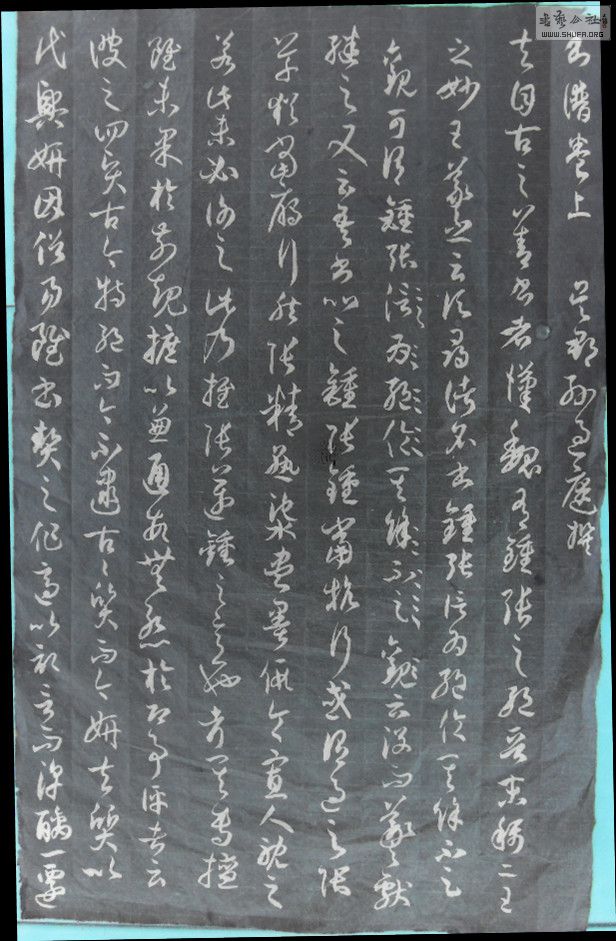 書譜卷上 吳郡孫過庭撰
夫自古之善書者漢魏有鍾張之絕晉末稱二王
之妙王羲之云頃尋諸名書鍾張信為絕倫其餘不足
觀可謂鍾張信為絕倫其餘不足觀云沒而羲獻
繼之又云吾書比之鍾張鍾當抗行或謂過之張
草猶當雁行然張精熟池水盡墨假令寡人耽之
若此未必謝之此乃推張邁鍾之意也考其專擅
雖未果於前規摭以兼通故無慚於即事評者云
彼之四賢古今特絕而今不逮古々質而今妍夫質以
代興妍因俗易雖書契之作適以記言而淳醨一遷
书艺公社
WWW.SHUFA.ORG